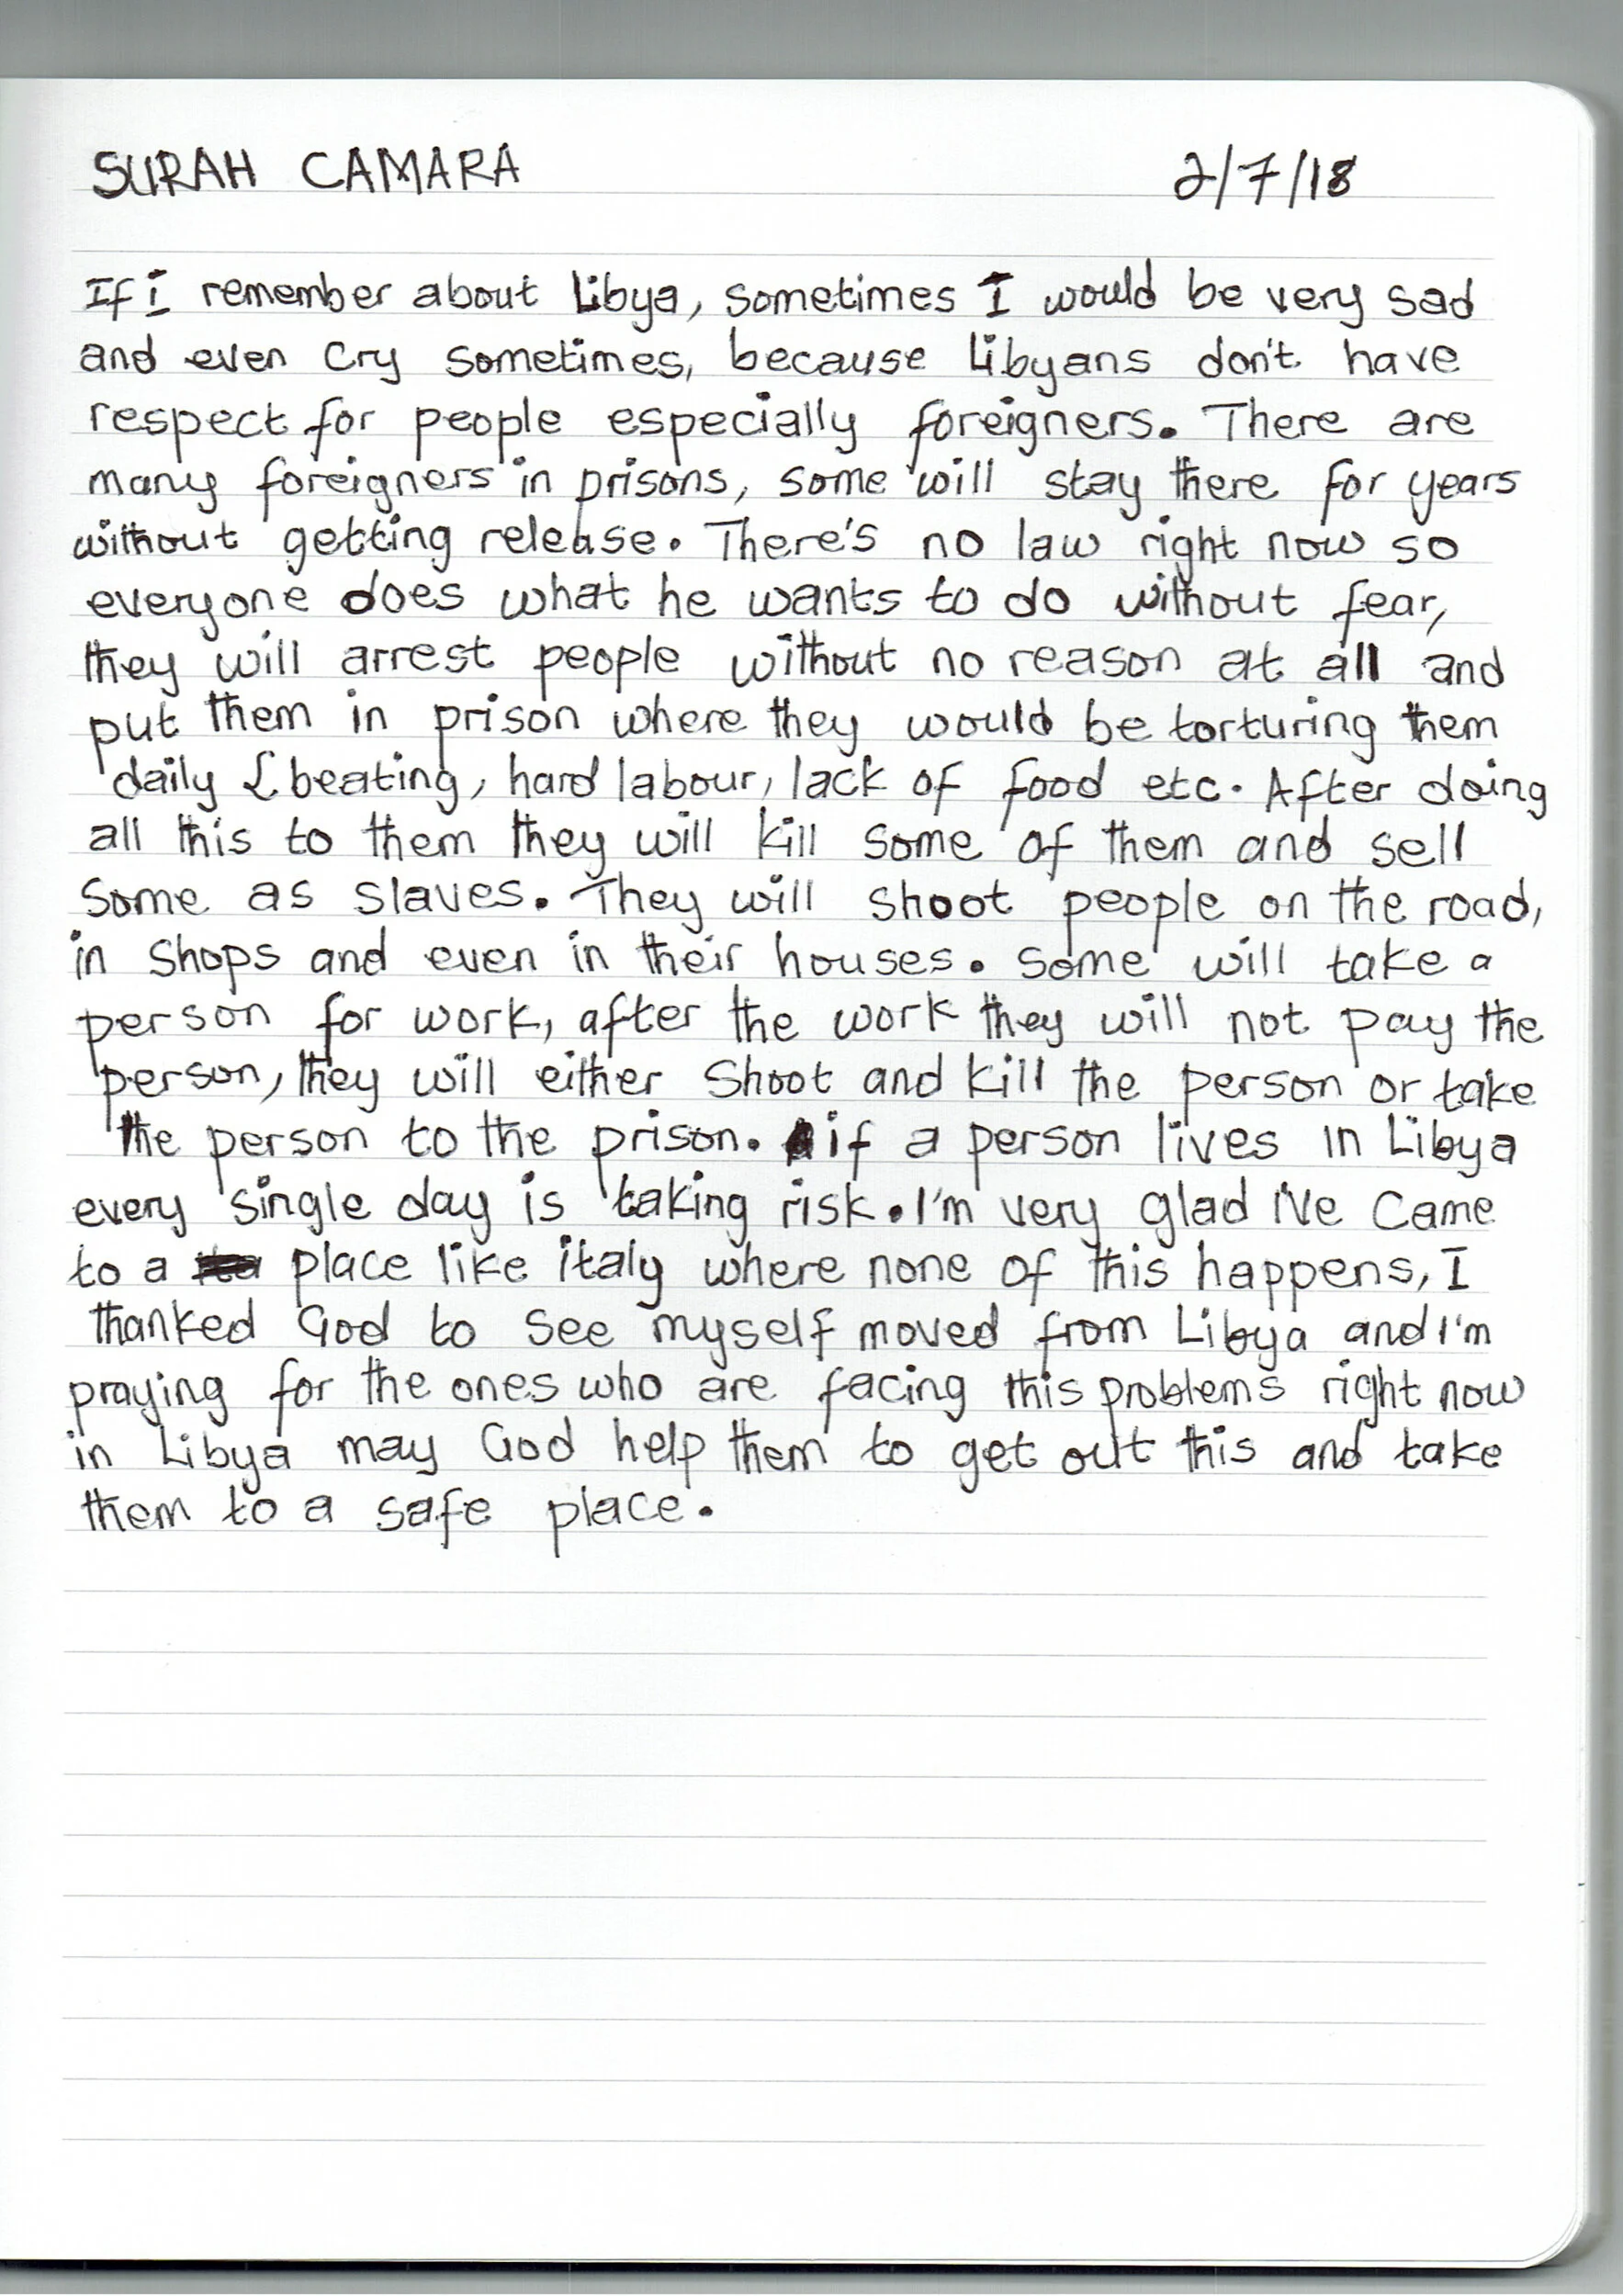 SURAH CAMARA 2/7/18
If i remember about Libya, sometimes I would be very sad
and even cry sometimes, because Libyans don't have
respect for people especially foreigners. There are
many foreigners in prisons, some will stay there for years
without getting release. There's no law right now so
everyone does what he wants to do without fear,
they will arrest people without no reason at all and
put them in prison where they would be torturing them
daily { beating, hard labour, lack of food etc. After doing
all this to them they will kill some of them and sell
some as slaves. They will shoot people on the road,
in shops and even in their houses. Some will take a
person for work, after the work they will not pay the
person, they will either shoot and kill the person or take
the person to the prison. if a person lives in Libya
every single day is taking risk. I'm very glad I've came
to a place like italy where none of this happens, I
thanked God to see myself moved from Libya and I'm
praying for the ones who are facing this problems right now
in Libya may God help them to get out this and take
them to a safe place.